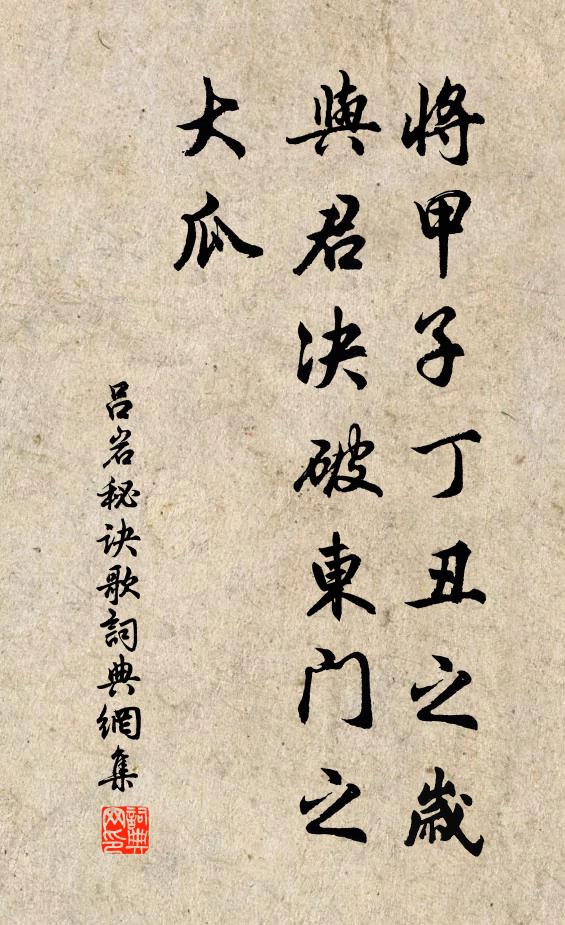 將甲子丁丑之歲
與君决破東门之
大瓜
吕岩秘诀歌詞典網集
詞典
网印